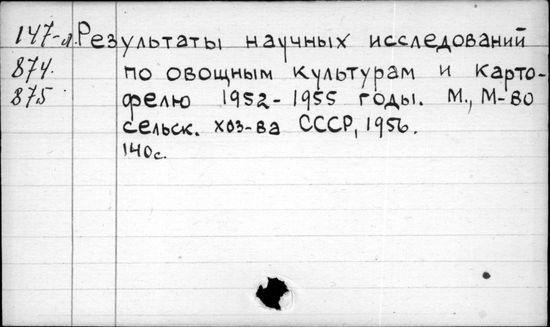 147-л. Результаты научных исследований
874. по овощным культурам и карто-
875 фелю 1952-1955 годы. М., М-во
сельск. хоз-ва СССР, 1956.
140с.